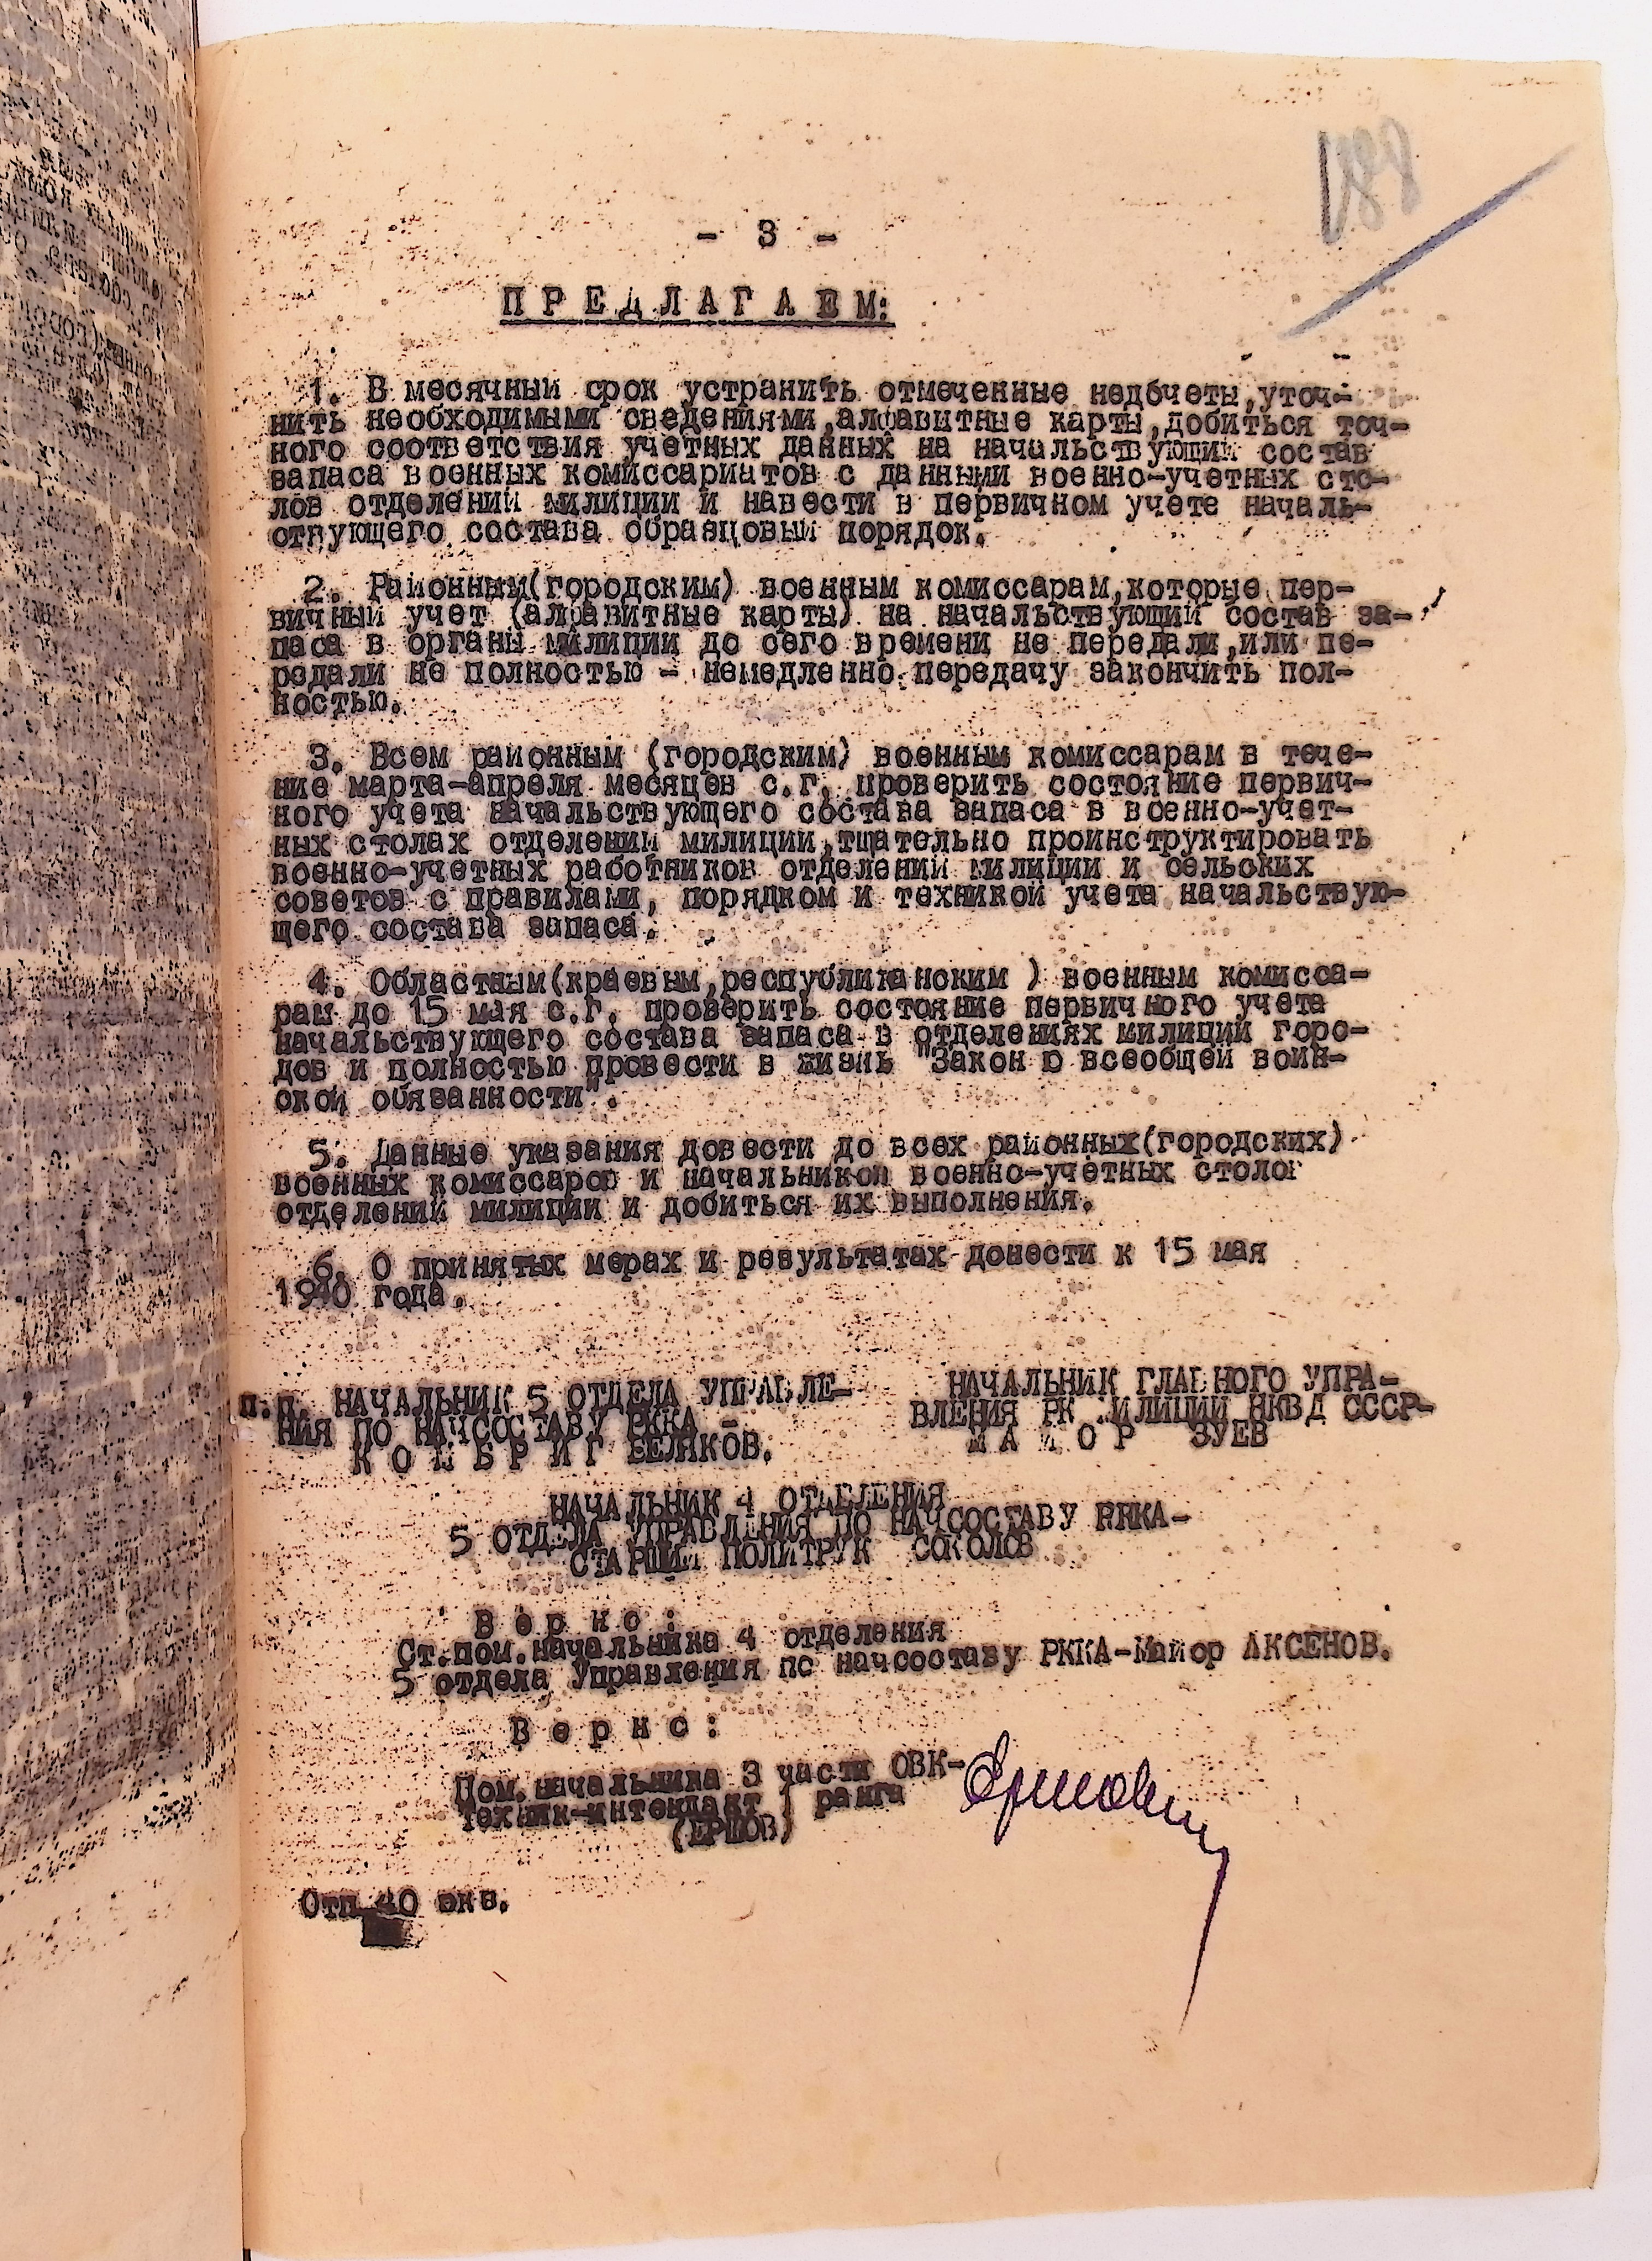 188
- 3 -
П Р Е Д Л А Г А Е М:
1. В месячный срок устранить отмеченные недочеты, уточ-
нить необходимыми сведениями, алфавитные карты, добиться точ-
ного соответствия учетных данных на начальствующий состав
запаса военных комиссариатов с данными военно-учетных сто-
лов отделений милиции и навести в первичном учете началь-
ствующего состава образцовый порядок.
2. Районным(городским) военным комиссарам, которые пер-
вичный учет (алфавитные карты) на начальствующий состав за-
паса в органы милиции до сего времени не передали, или пе-
редали не полностью - немедленно передачу закончить пол-
ностью.
3. Всем районным (городским) военным комиссарам в тече-
ние марта-апреля месяцев с.г. проверить состояние первич-
ного учета начальствующего состава запаса в военно-учет-
ных столах отделений милиции, тщательно проинструктировать
военно-учетных работников отделений милиции и сельских
советов с правилами, порядком и техникой учета начальствую-
щего состава запаса.
4. Областным(краевым, республиканским ) военным комисса-
рам до 15 мая с.г. проверить состояние первичного учета
начальствующего состава запаса в отделениях милиции горо-
дов и полностью провести в жизнь "Закон о всеобщей воин-
ской обязанности".
5. Данные указания довести до всех районных(городских)
военных комиссаров и начальников военно-учетных столов
отделений милиции и добиться их выполнения.
6. О принятых мерах и результатах донести к 15 мая
1940 года.
п.п. НАЧАЛЬНИК 5 ОТДЕЛА УПРАВЛЕ-
НИЯ ПО НАЧСОСТАВУ РККА -
К О М Б Р И Г БЕЛЯКОВ.
НАЧАЛЬНИК ГЛАВНОГО УПРА-
ВЛЕНИЯ РК МИЛИЦИИ НКВД СССР-
М А Й О Р ЗУЕВ
НАЧАЛЬНИК 4 ОТДЕЛЕНИЯ
5 ОТДЕЛА УПРАВЛЕНИЯ ПО НАЧСОСТАВУ РККА-
СТАРШИЙ ПОЛИТРУК СОКОЛОВ
В е р н о :
Ст.пом.начальника 4 отделения
5 отдела Управления по начсоставу РККА-Майор АКСЕНОВ.
В е р н о :
Пом.начальника 3 части ОВК-
Техник-интендант 1 ранга
(ЕРШОВ)
Ершов
Отп 40 экз.